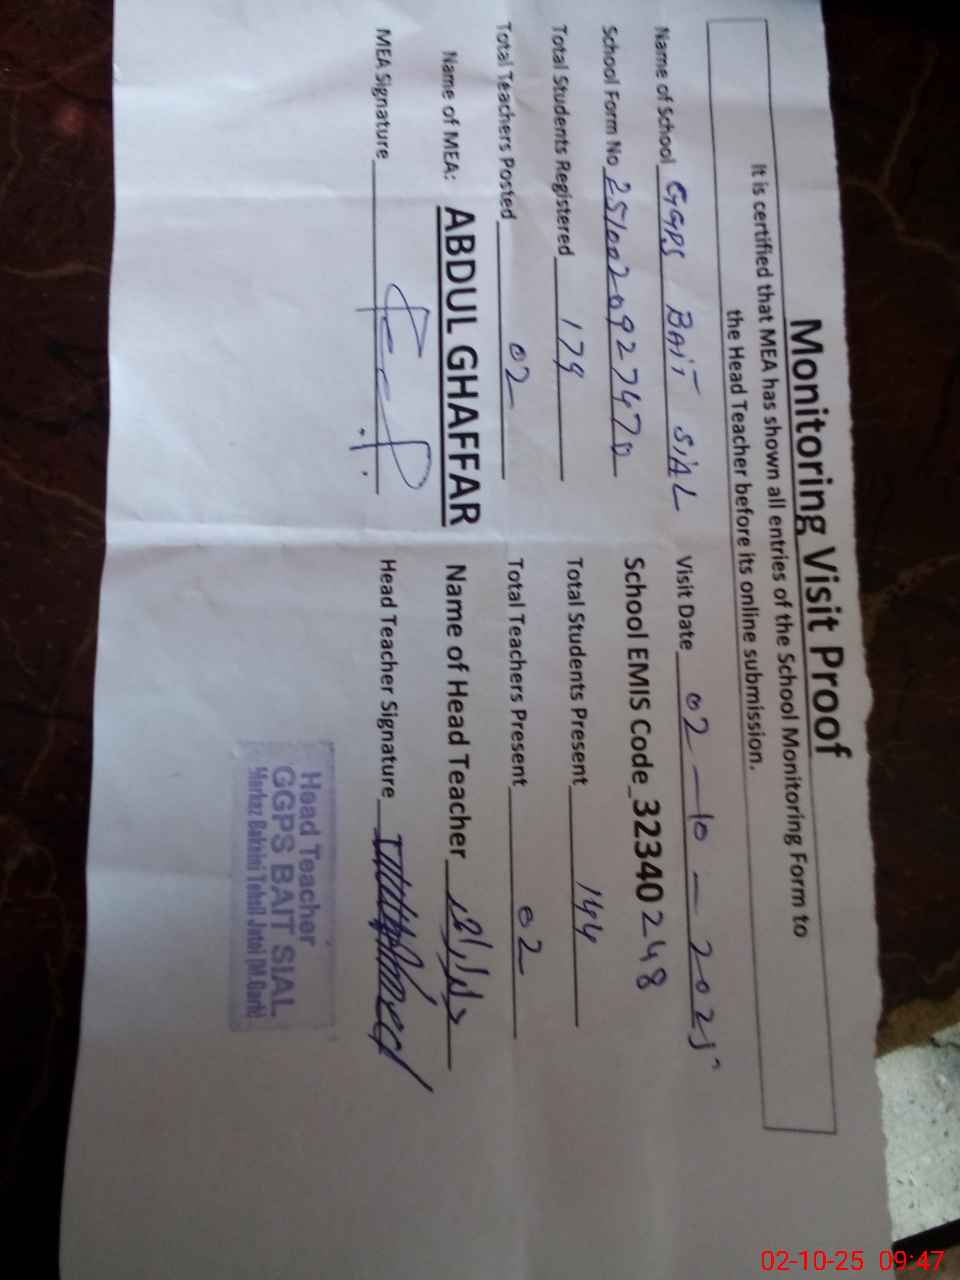 Monitoring Visit Proof
It is certified that MEA has shown all entries of the School Monitoring Form to
the Head Teacher before its online submission.
Name of School GGPS BAIT SIAL Visit Date 02-10-2025
School Form No 2510020927470 School EMIS Code 32340248
Total Students Registered 179 Total Students Present 144
Total Teachers Posted 02 Total Teachers Present 02
Name of MEA: ABDUL GHAFFAR Name of Head Teacher
MEA Signature Head Teacher Signature
Head Teacher
GGPS BAIT SIAL
Markaz Bakaini Tehsil Jatoi (M.Garh)
02-10-25 09:47